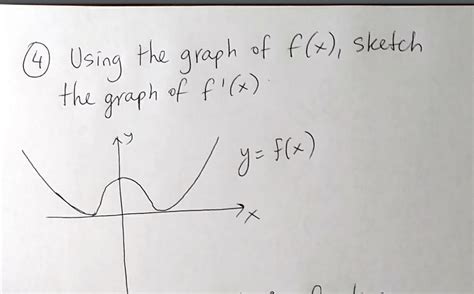 4 Using the graph of f(x), sketch
the graph of f'(x).
y
y = f(x)
x